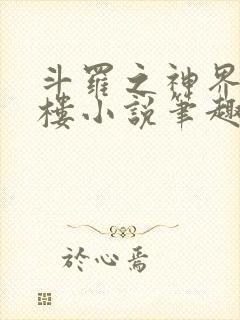 斗羅之神界
樓小說筆趣
於心焉